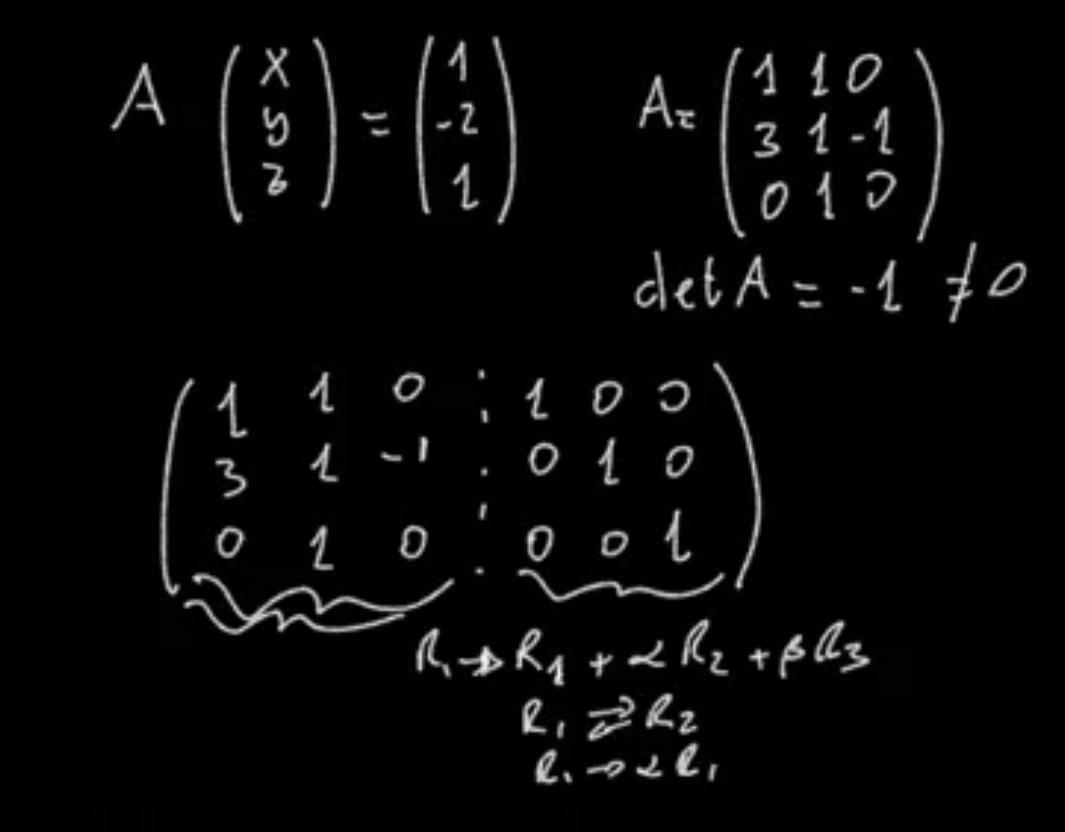 A (x y z) = (1 -2 1) A= (1 1 0
3 1 -1
0 1 0)
det A = -1 ≠ 0
(1 1 0 : 1 0 0
3 1 -1 : 0 1 0
0 1 0 : 0 0 1)
R₁ → R₁ + α R₂ + β R₃
R₁ ⇄ R₂
R₁ → α R₁